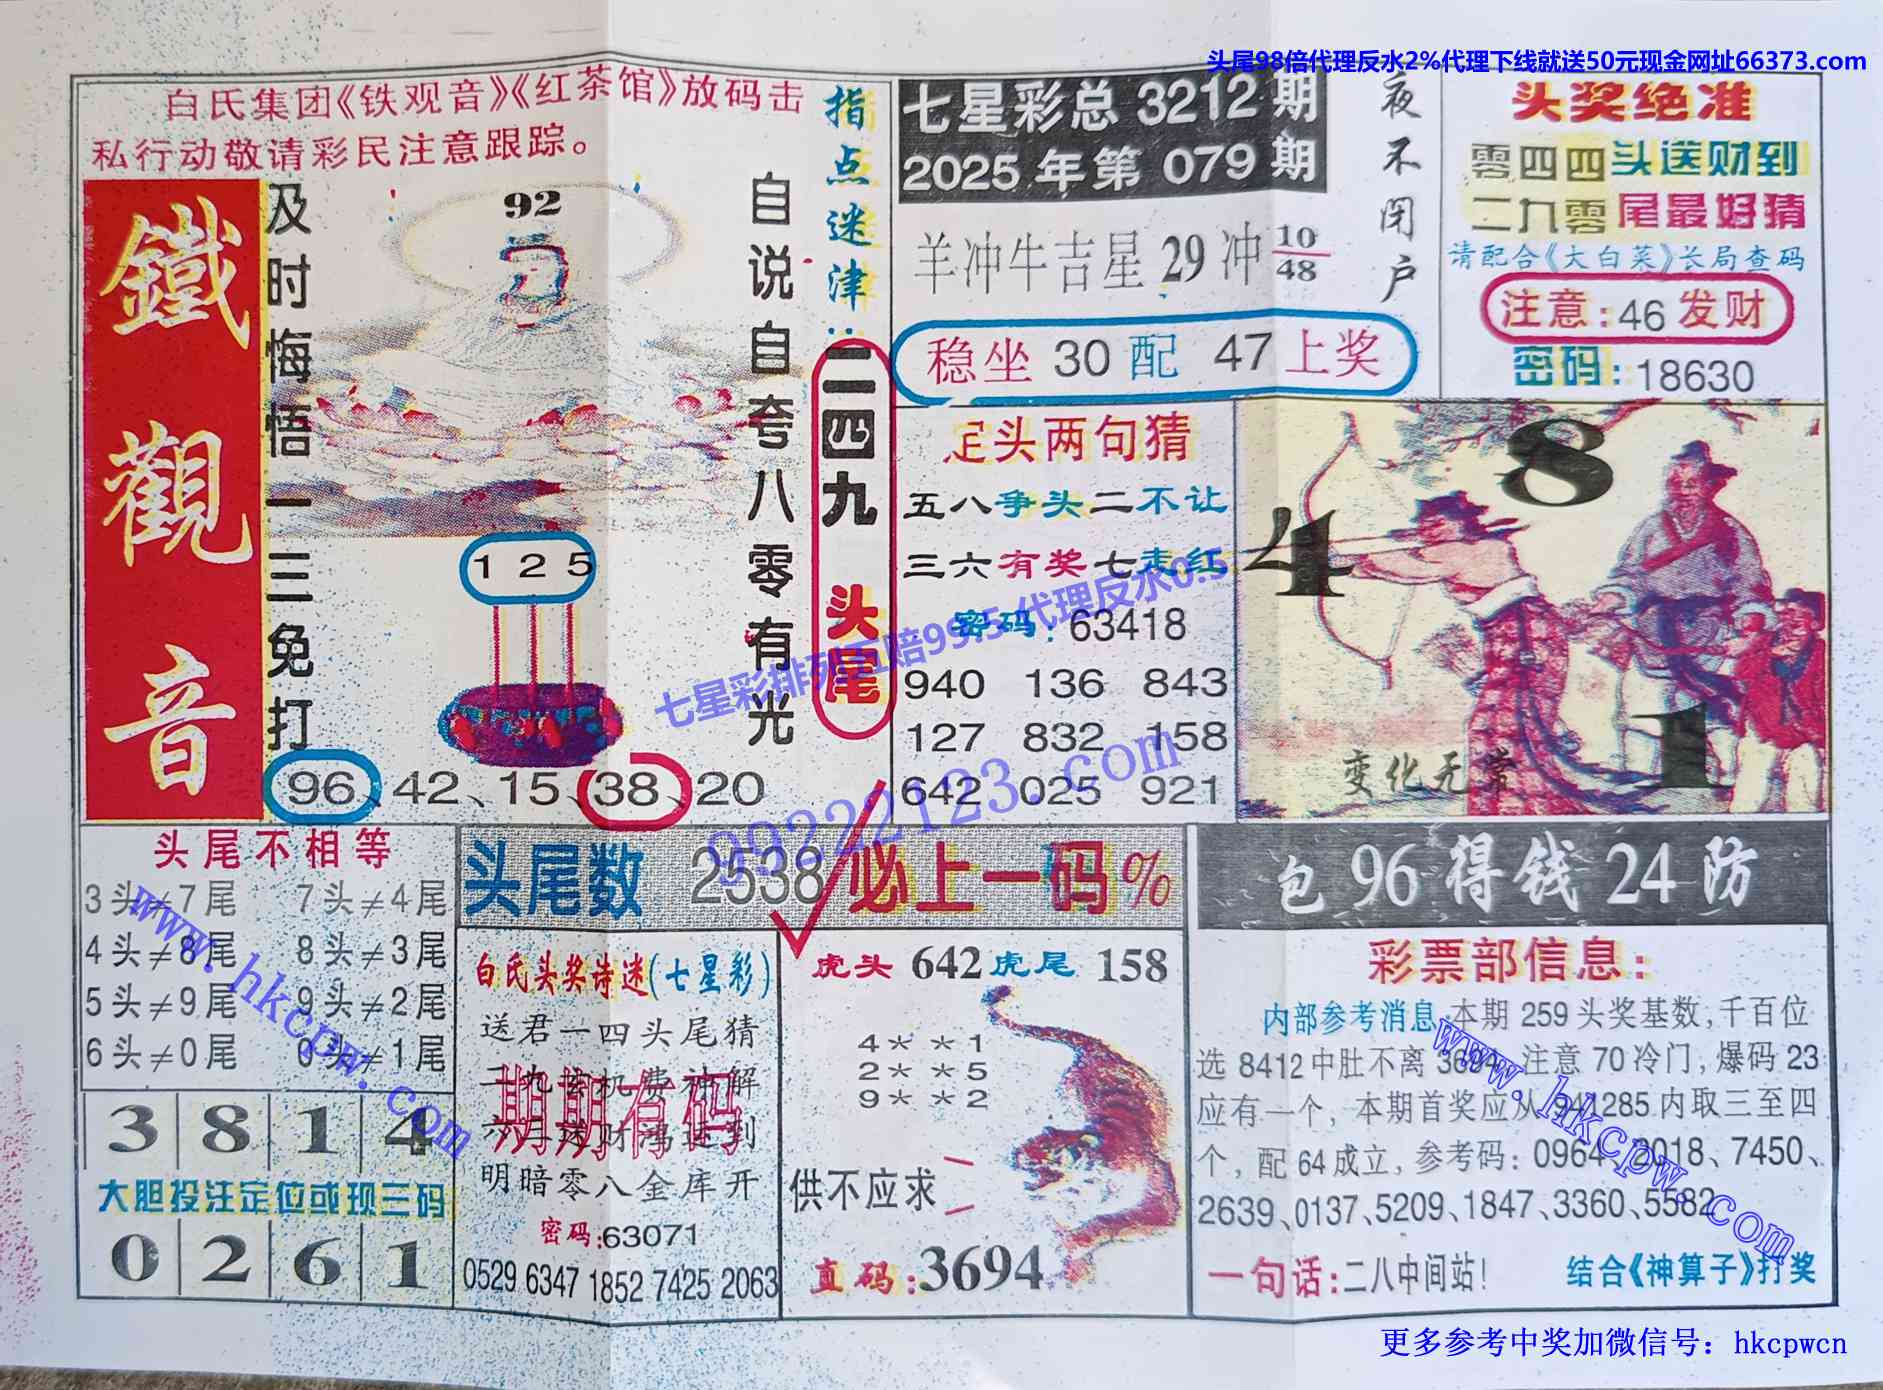 头尾98倍代理反水2%代理下线就送50元现金网址66373.com
白氏集团《铁观音》《红茶馆》放码击
私行动敬请彩民注意跟踪。
鐵觀音
及时悔悟一三免打
92
自说自夸八零有光
125
96、42、15、38、20
指点迷津:
二四九头尾
七星彩总3212期
2025年第079期
羊冲牛吉星29冲10/48
稳坐30配47上奖
夜不闭户
头奖绝准
零四四头送财到
二九零尾最好猜
请配合《大白菜》长局查码
注意:46发财
密码:18630
足头两句猜
五八争头二不让
三六有奖七走红
密码:63418
940 136 843
127 832 158
642 025 921
七星彩排列五赔99.5代理反水0.5
99222123.com
8
4
1
变化无常
头尾不相等
3头≠7尾 7头≠4尾
4头≠8尾 8头≠3尾
5头≠9尾 9头≠2尾
6头≠0尾 0头≠1尾
3 8 1 4
大胆投注定位或现三码
0 2 6 1
头尾数 2538 必上一码%
白氏头奖诗迷(七星彩)
送君一四头尾猜
二九玄机费神解
六三送财鸿运到
明暗零八金库开
期期有码
密码:63071
0529 6347 1852 7425 2063
虎头642虎尾158
4**1
2**5
9**2
供不应求
直码:3694
包96得钱24防
彩票部信息:
内部参考消息:本期259头奖基数,千百位
选8412中肚不离3694,注意70冷门,爆码23
应有一个,本期首奖应从941285内取三至四
个,配64成立,参考码:0964、2018、7450、
2639、0137、5209、1847、3360、5582
一句话:二八中间站!
结合《神算子》打奖
www.hkcpw.com
www.hkcpw.com
更多参考中奖加微信号:hkcpwcn